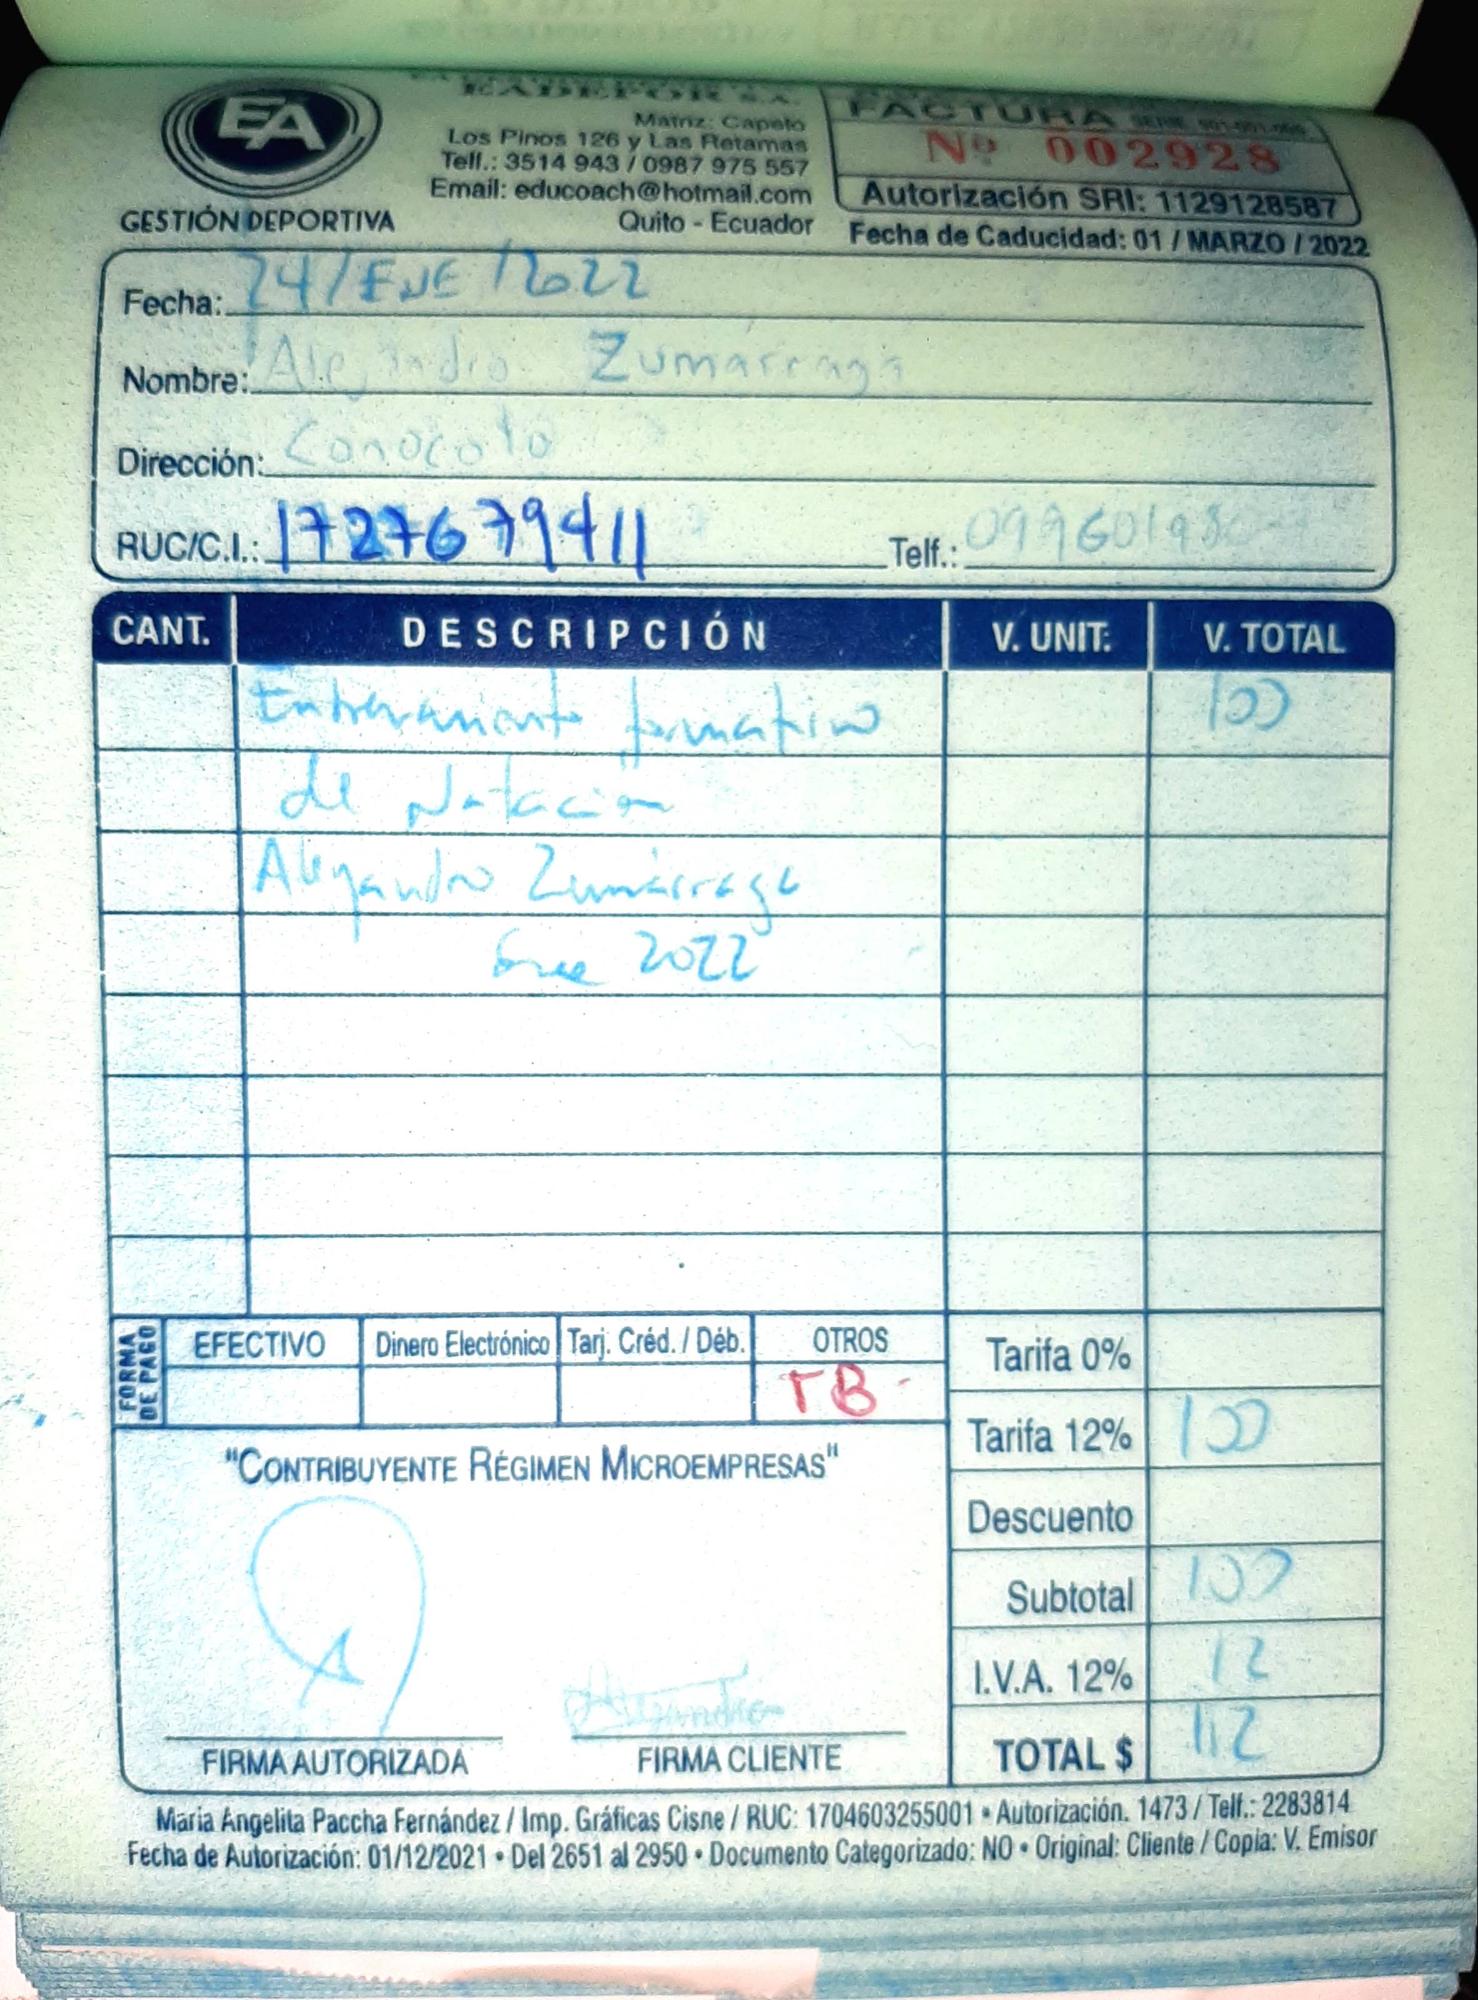 EA
GESTIÓN DEPORTIVA
EADEPOR S.A.
Matriz: Capelo
Los Pinos 126 y Las Retamas
Telf.: 3514 943 / 0987 975 557
Email: educoach@hotmail.com
Quito - Ecuador
FACTURA SERIE 001-001-000
Nº 002928
Autorización SRI: 1129128587
Fecha de Caducidad: 01 / MARZO / 2022
Fecha: 24/ENE/2022
Nombre: Alejandro Zumárraga
Dirección: Conocoto
RUC/C.I.: 1727679411 Telf.:
CANT. DESCRIPCIÓN V. UNIT. V. TOTAL
Entrenamiento formativo 100
de Natación
Alejandro Zumárraga
2022
FORMA DE PAGO
EFECTIVO Dinero Electrónico Tarj. Créd. / Déb. OTROS
TB
Tarifa 0%
Tarifa 12% 100
Descuento
Subtotal 100
I.V.A. 12% 12
TOTAL $ 112
"CONTRIBUYENTE RÉGIMEN MICROEMPRESAS"
Alejandro
FIRMA AUTORIZADA FIRMA CLIENTE
Maria Angelita Paccha Fernández / Imp. Gráficas Cisne / RUC: 1704603255001 • Autorización. 1473 / Telf.: 2283814
Fecha de Autorización: 01/12/2021 • Del 2651 al 2950 • Documento Categorizado: NO • Original: Cliente / Copia: V. Emisor